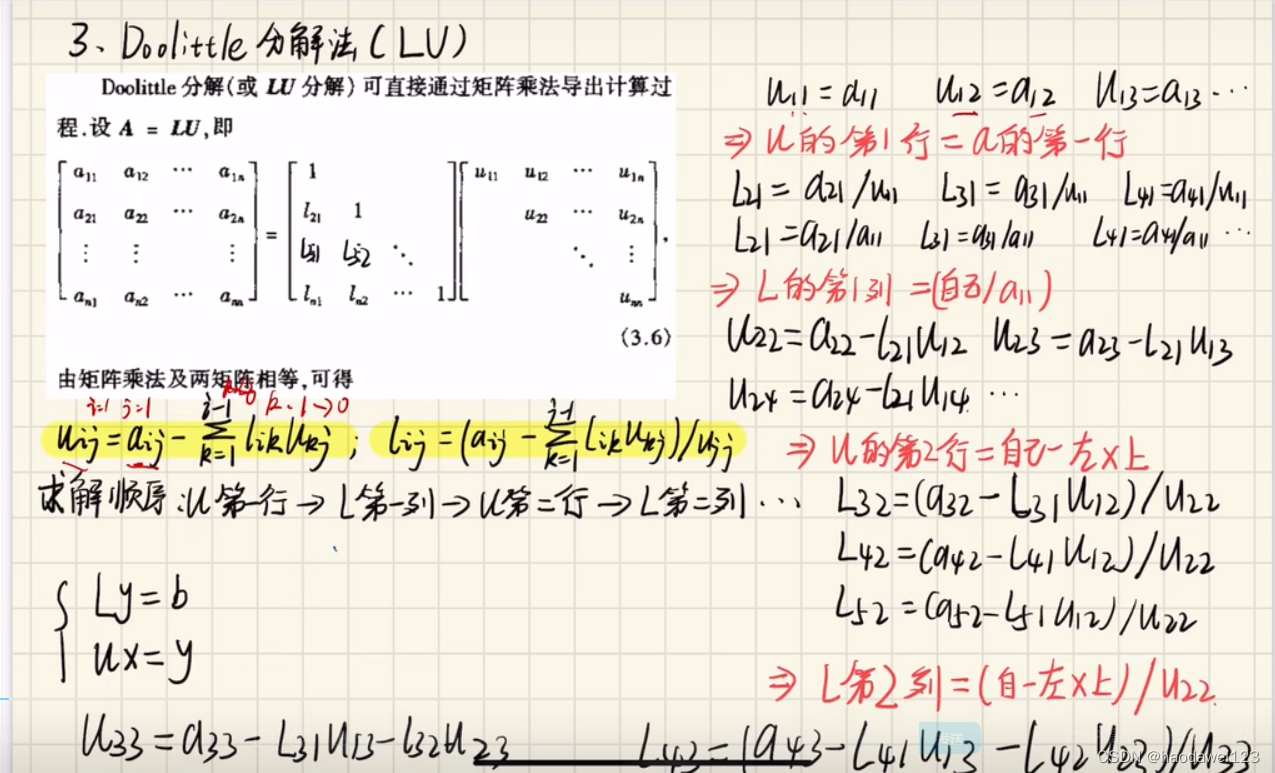 3、Doolittle分解法(LU)
Doolittle 分解(或 LU 分解)可直接通过矩阵乘法导出计算过
程.设 A = LU,即
a₁₁ a₁₂ ⋯ a₁ₙ
a₂₁ a₂₂ ⋯ a₂ₙ
⋮ ⋮ ⋮
aₙ₁ aₙ₂ ⋯ aₙₙ
=
1
l₂₁ 1
L31 L32 ⋱
lₙ₁ lₙ₂ ⋯ 1
u₁₁ u₁₂ ⋯ u₁ₙ
u₂₂ ⋯ u₂ₙ
⋱ ⋮
uₙₙ
,
(3.6)
由矩阵乘法及两矩阵相等,可得
i=1 j=1 k=1→0
uij = aij - Σ(k=1, i-1) lik ukj ; lij = (aij - Σ(k=1, j-1) lik ukj)/ujj
求解顺序:U第一行→L第一列→U第二行→L第二列⋯
{ Ly=b
Ux=y
U33=a33-L31U13-L32U23
U11=a11 U12=a12 U13=a13⋯
⇒U的第1行=a的第一行
L21=a21/U11 L31=a31/U11 L41=a41/U11
L21=a21/a11 L31=a31/a11 L41=a41/a11⋯
⇒L的第1列=(自己/a11)
U22=a22-L21U12 U23=a23-L21U13
U24=a24-L21U14⋯
⇒U的第2行=自己-左×上
L32=(a32-L31U12)/U22
L42=(a42-L41U12)/U22
L52=(a52-L51U12)/U22
⇒L第2列=(自-左×上)/U22
L43=(a43-L41U13-L42U23)/U33
发送
CSDN @haodawei123